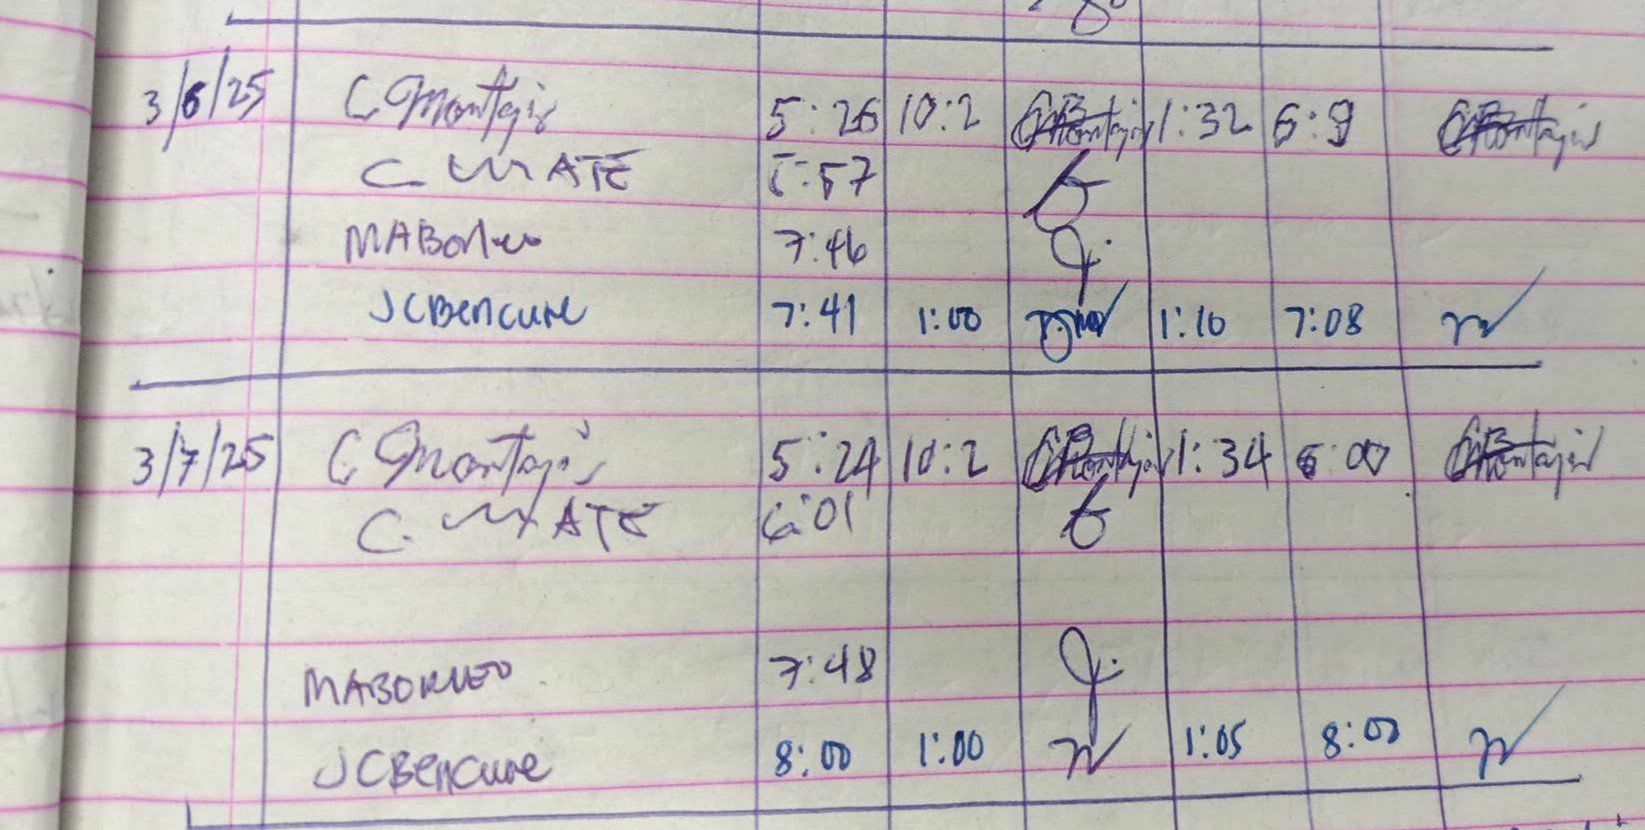 3/6/25 C Montajis 5:26 10:2 1:32 6:9
C MATE 5:57
MABorneo 7:46
JCBencure 7:41 1:00 1:10 7:08
3/7/25 C Montajis 5:24 10:2 1:34 6:00
C. MATE 6:01
MABORNEO 7:48
JCBencure 8:00 1:00 1:05 8:00